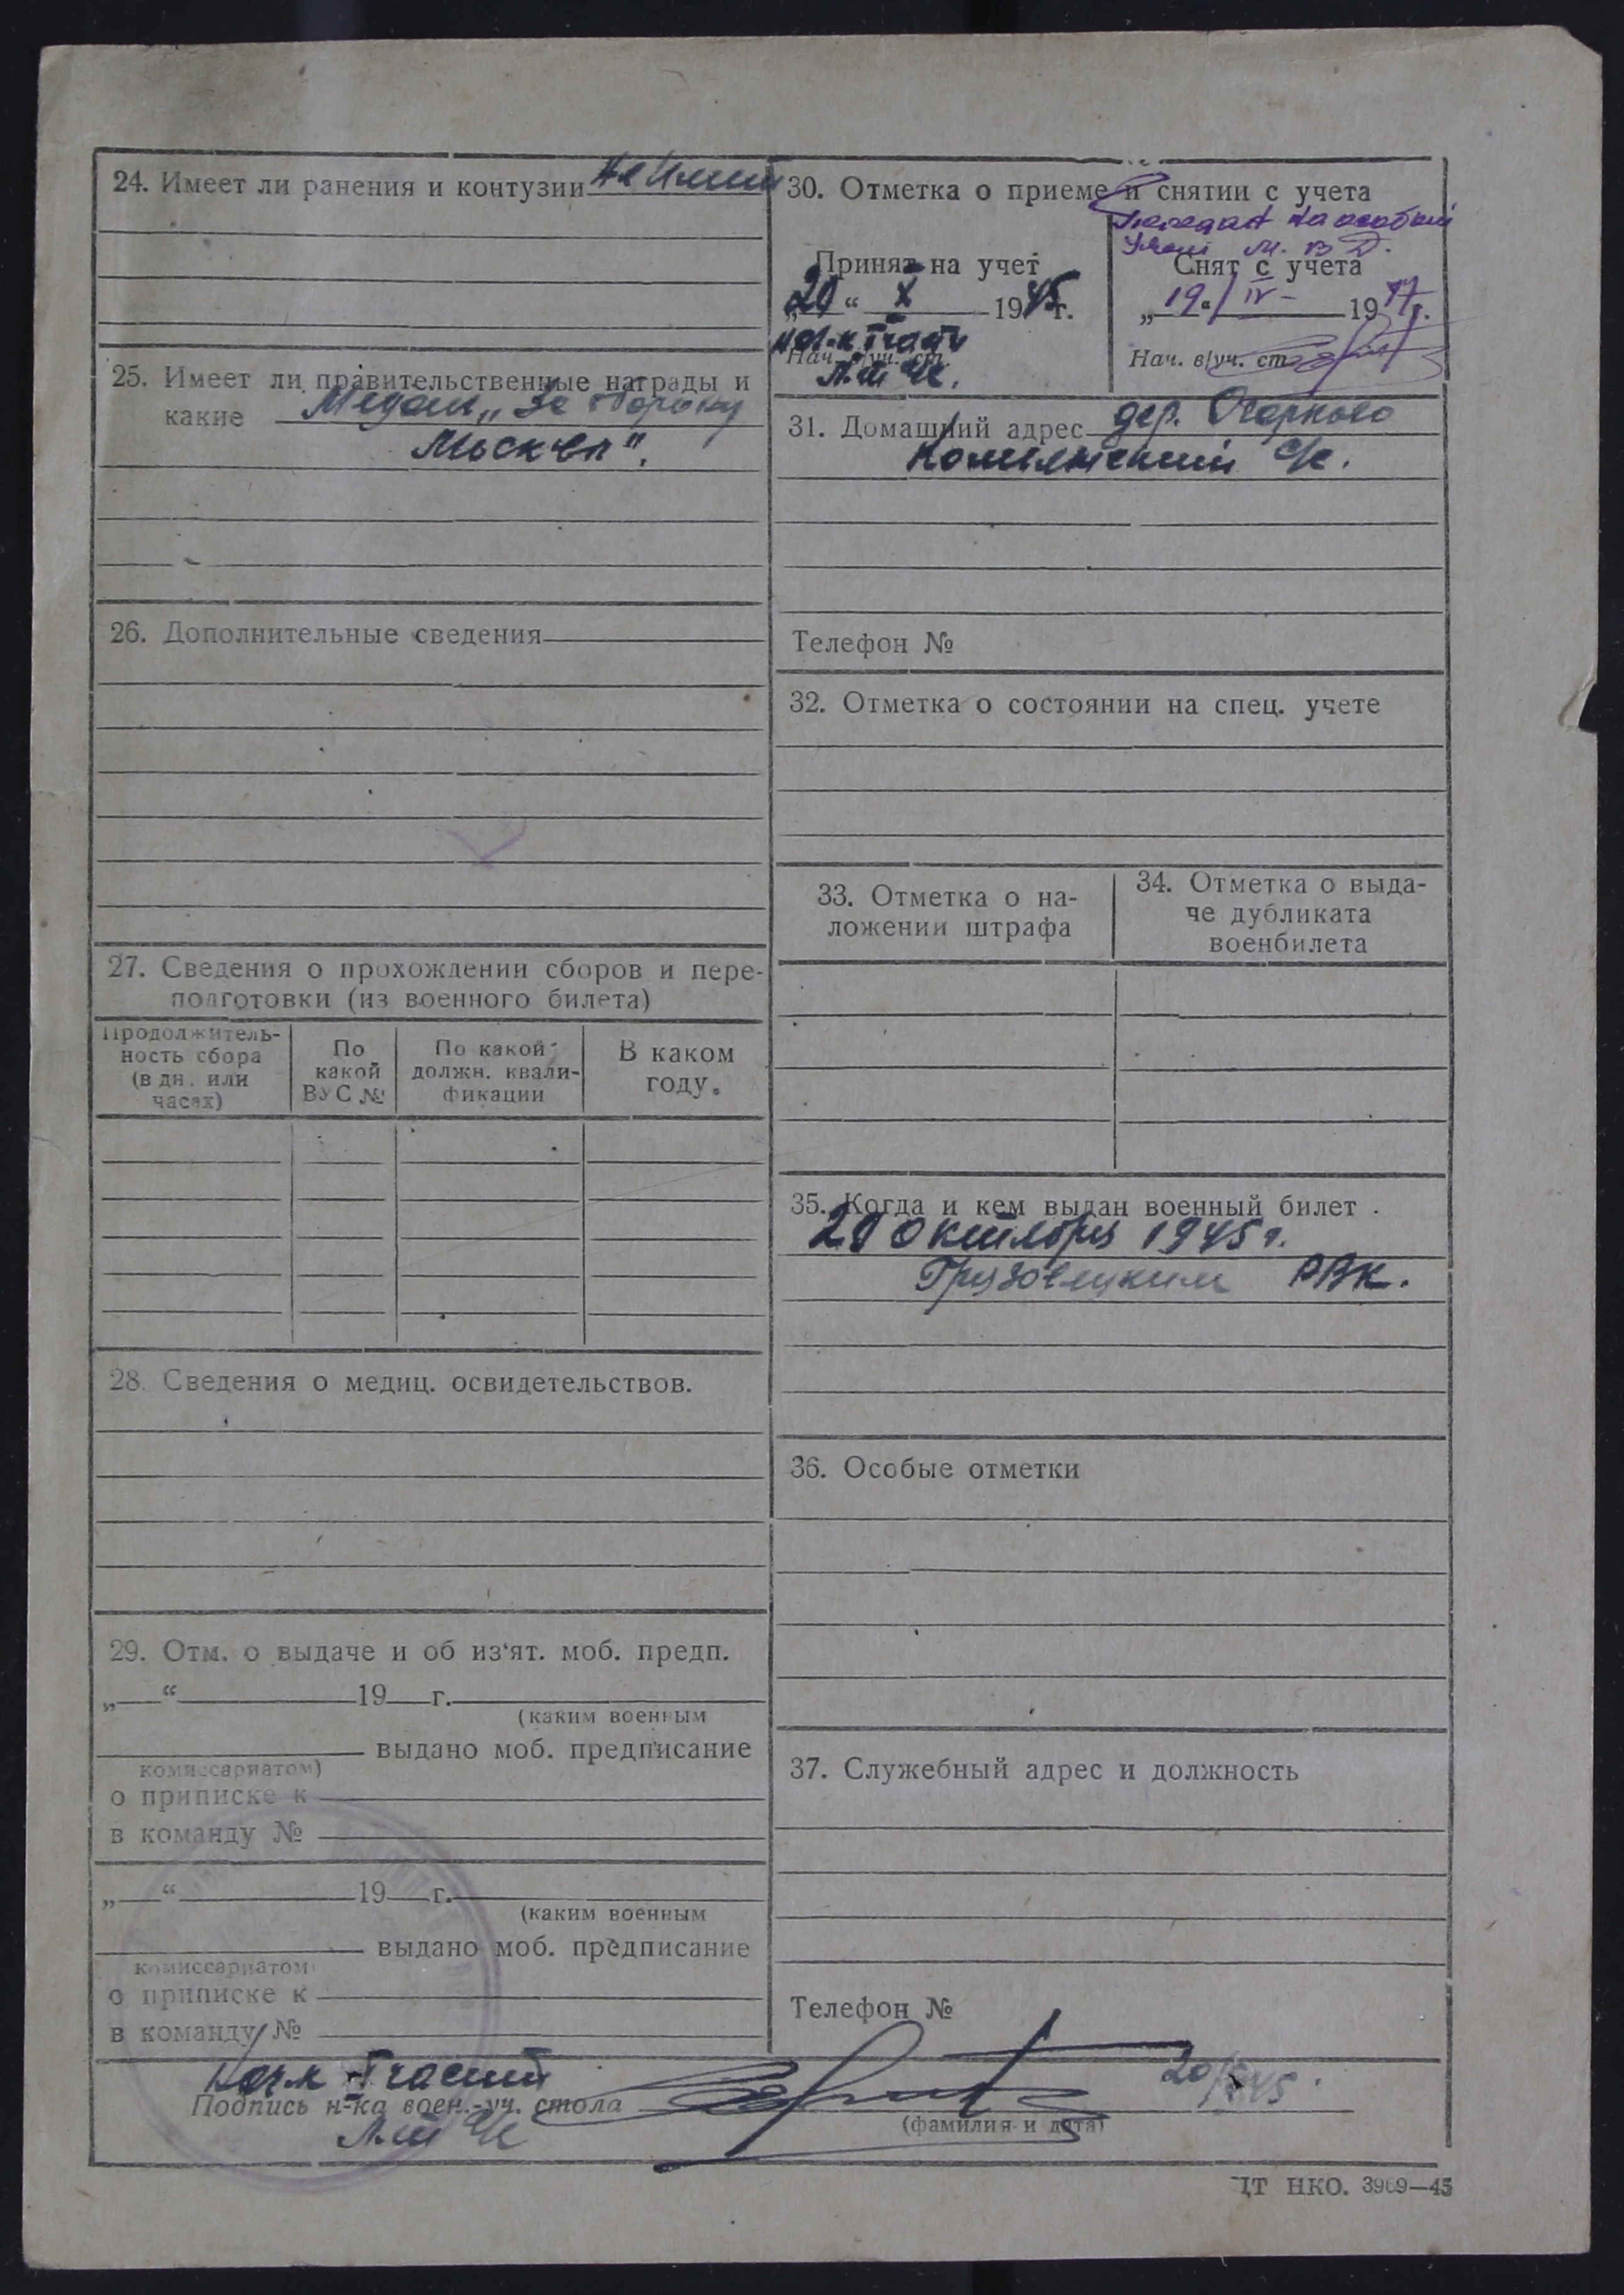 24. Имеет ли ранения и контузии не имеет
25. Имеет ли правительственные награды и
какие Медаль „За оборону
Москвы".
26. Дополнительные сведения
27. Сведения о прохождении сборов и пере-
подготовки (из военного билета)
Продолжитель-
ность сбора
(в дн. или
часах)
По
какой
ВУС №
По какой
должн. квали-
фикации
В каком
году.
28. Сведения о медиц. освидетельствов.
29. Отм. о выдаче и об из‘ят. моб. предп.
„ “ 19 г.
(каким военным
выдано моб. предписание
комиссариатом)
о приписке к
в команду №
„ “ 19 г.
(каким военным
выдано моб. предписание
комиссариатом
о приписке к
в команду №
30. Отметка о приеме и снятии с учета
Передан на особый
учет М. В Д.
Принят на учет
20 “ X 1945г.
нач-к части
Нач. в/уч. ст.
Снят с учета
„19“ IV- 1947г.
Нач. в/уч. ст.
31. Домашний адрес дер. Огарково
с/с.
Телефон №
32. Отметка о состоянии на спец. учете
33. Отметка о на-
ложении штрафа
34. Отметка о выда-
че дубликата
военбилета
35. Когда и кем выдан военный билет .
20 октября 1945 г.
Грязовецким РВК.
36. Особые отметки
37. Служебный адрес и должность
Телефон №
Нач-к части
Подпись н-ка воен.-уч. стола
20/X 45.
(фамилия и дата)
ЦТ НКО. 3969—45